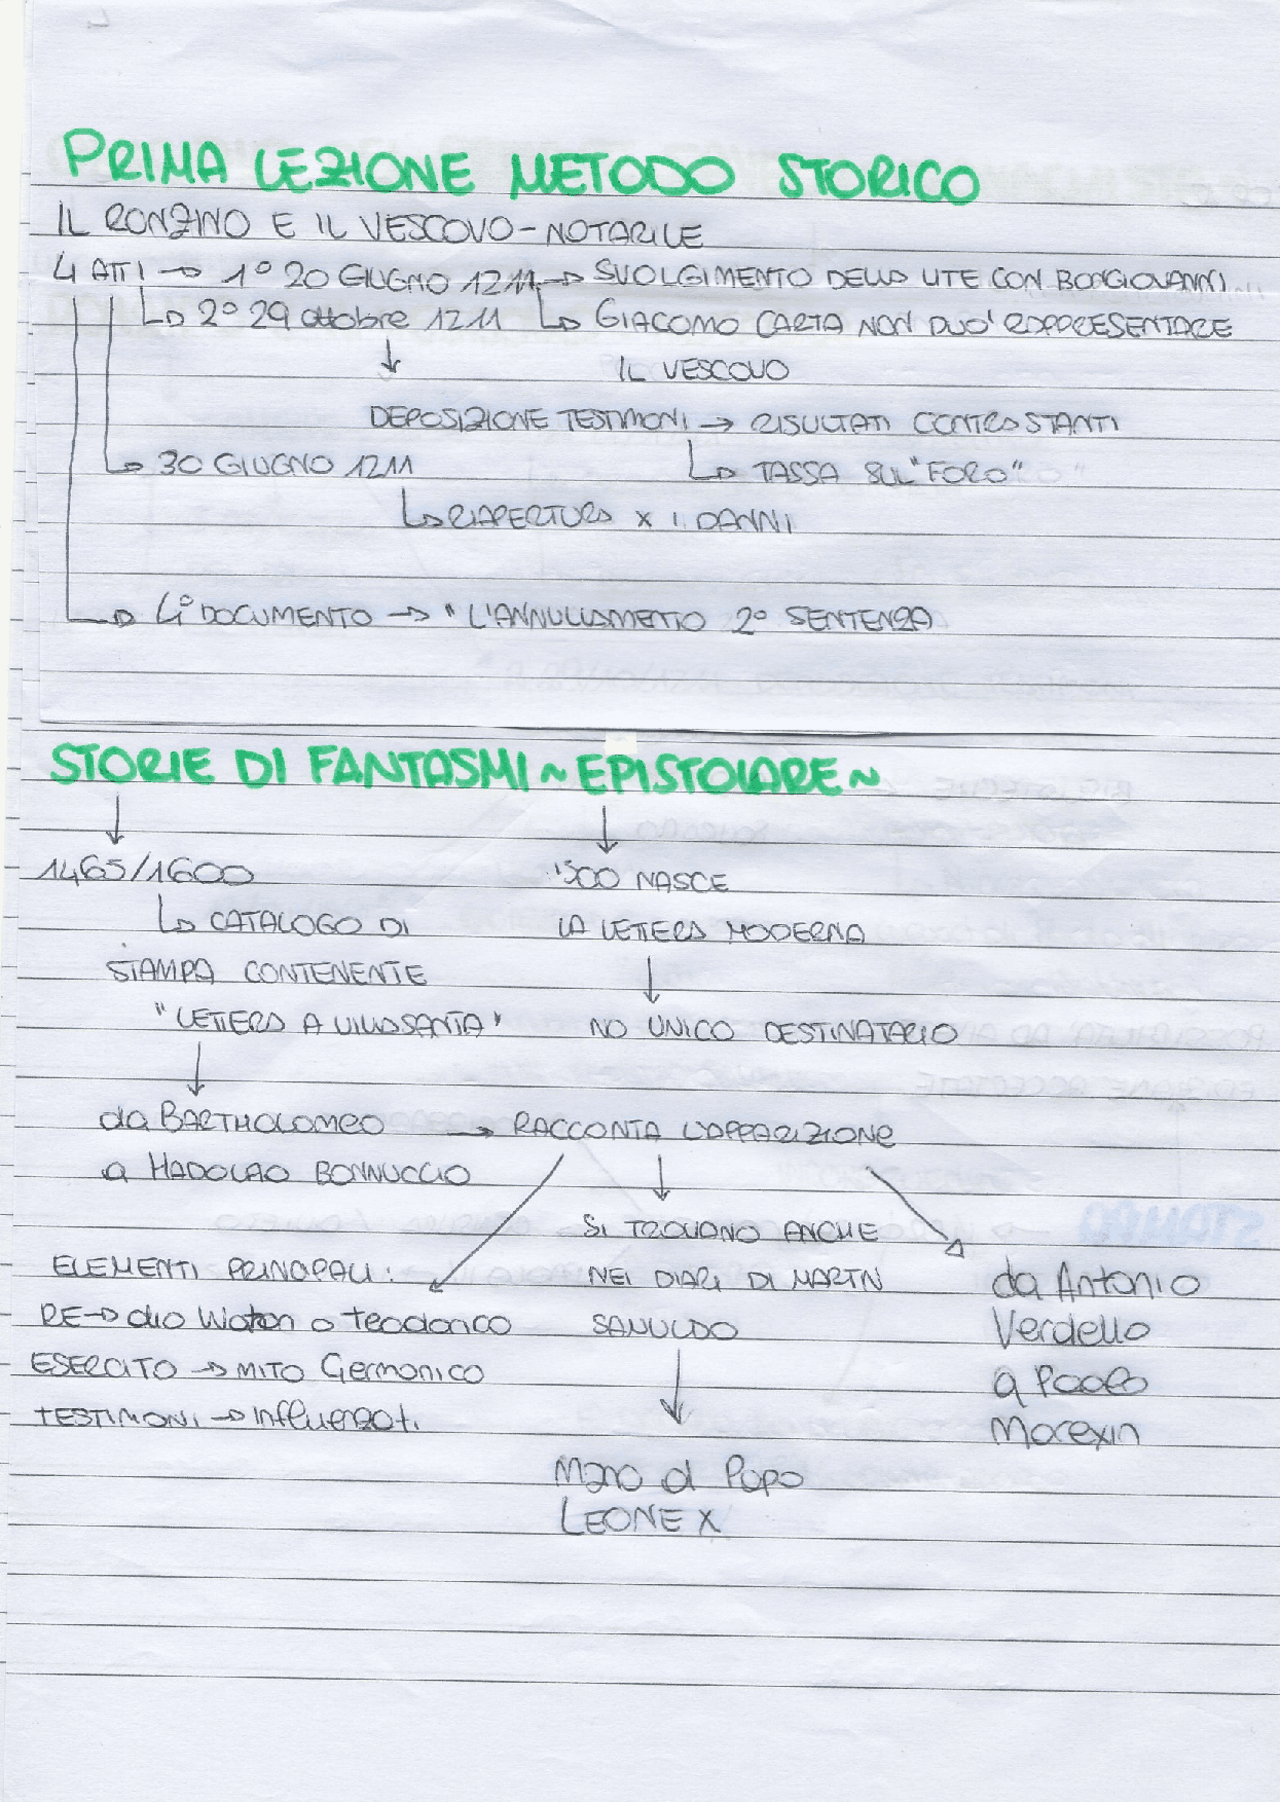 PRIMA LEZIONE METODO STORICO
IL RONZINO E IL VESCOVO - NOTARILE
4 ATTI → 1° 20 GIUGNO 1211 → SVOLGIMENTO DELLA LITE CON BONGIOVANNI
↳ 2° 29 ottobre 1211 ↳ GIACOMO CARTA NON PUO' RAPPRESENTARE
↓ IL VESCOVO
DEPOSIZIONE TESTIMONI → RISULTATI CONTRASTANTI
↳ 30 GIUGNO 1211 ↳ TASSA SUL "FORO"
↳ RIAPERTURA X I DANNI
↳ 4° DOCUMENTO → " L'ANNULLAMENTO 2° SENTENZA
STORIE DI FANTASMI ~ EPISTOLARE ~
↓ ↓
1465/1600 '500 NASCE
↳ CATALOGO DI LA LETTERA MODERNA
STAMPA CONTENENTE ↓
"LETTERA A VILLASANTA" NO UNICO DESTINATARIO
↓
da BARTHOLOMEO → RACCONTA L'APPARIZIONE
a HADOLAO BONNUCCIO ↓
SI TROVANO ANCHE
ELEMENTI PRINCIPALI: NEI DIARI DI MARTIN da Antonio
RE → dio Wotan o teodorico SANULDO Verdello
ESERCITO → MITO Germanico ↓ a Paolo
TESTIMONI → Influenzati Morexin
Mano al Papa
LEONE X